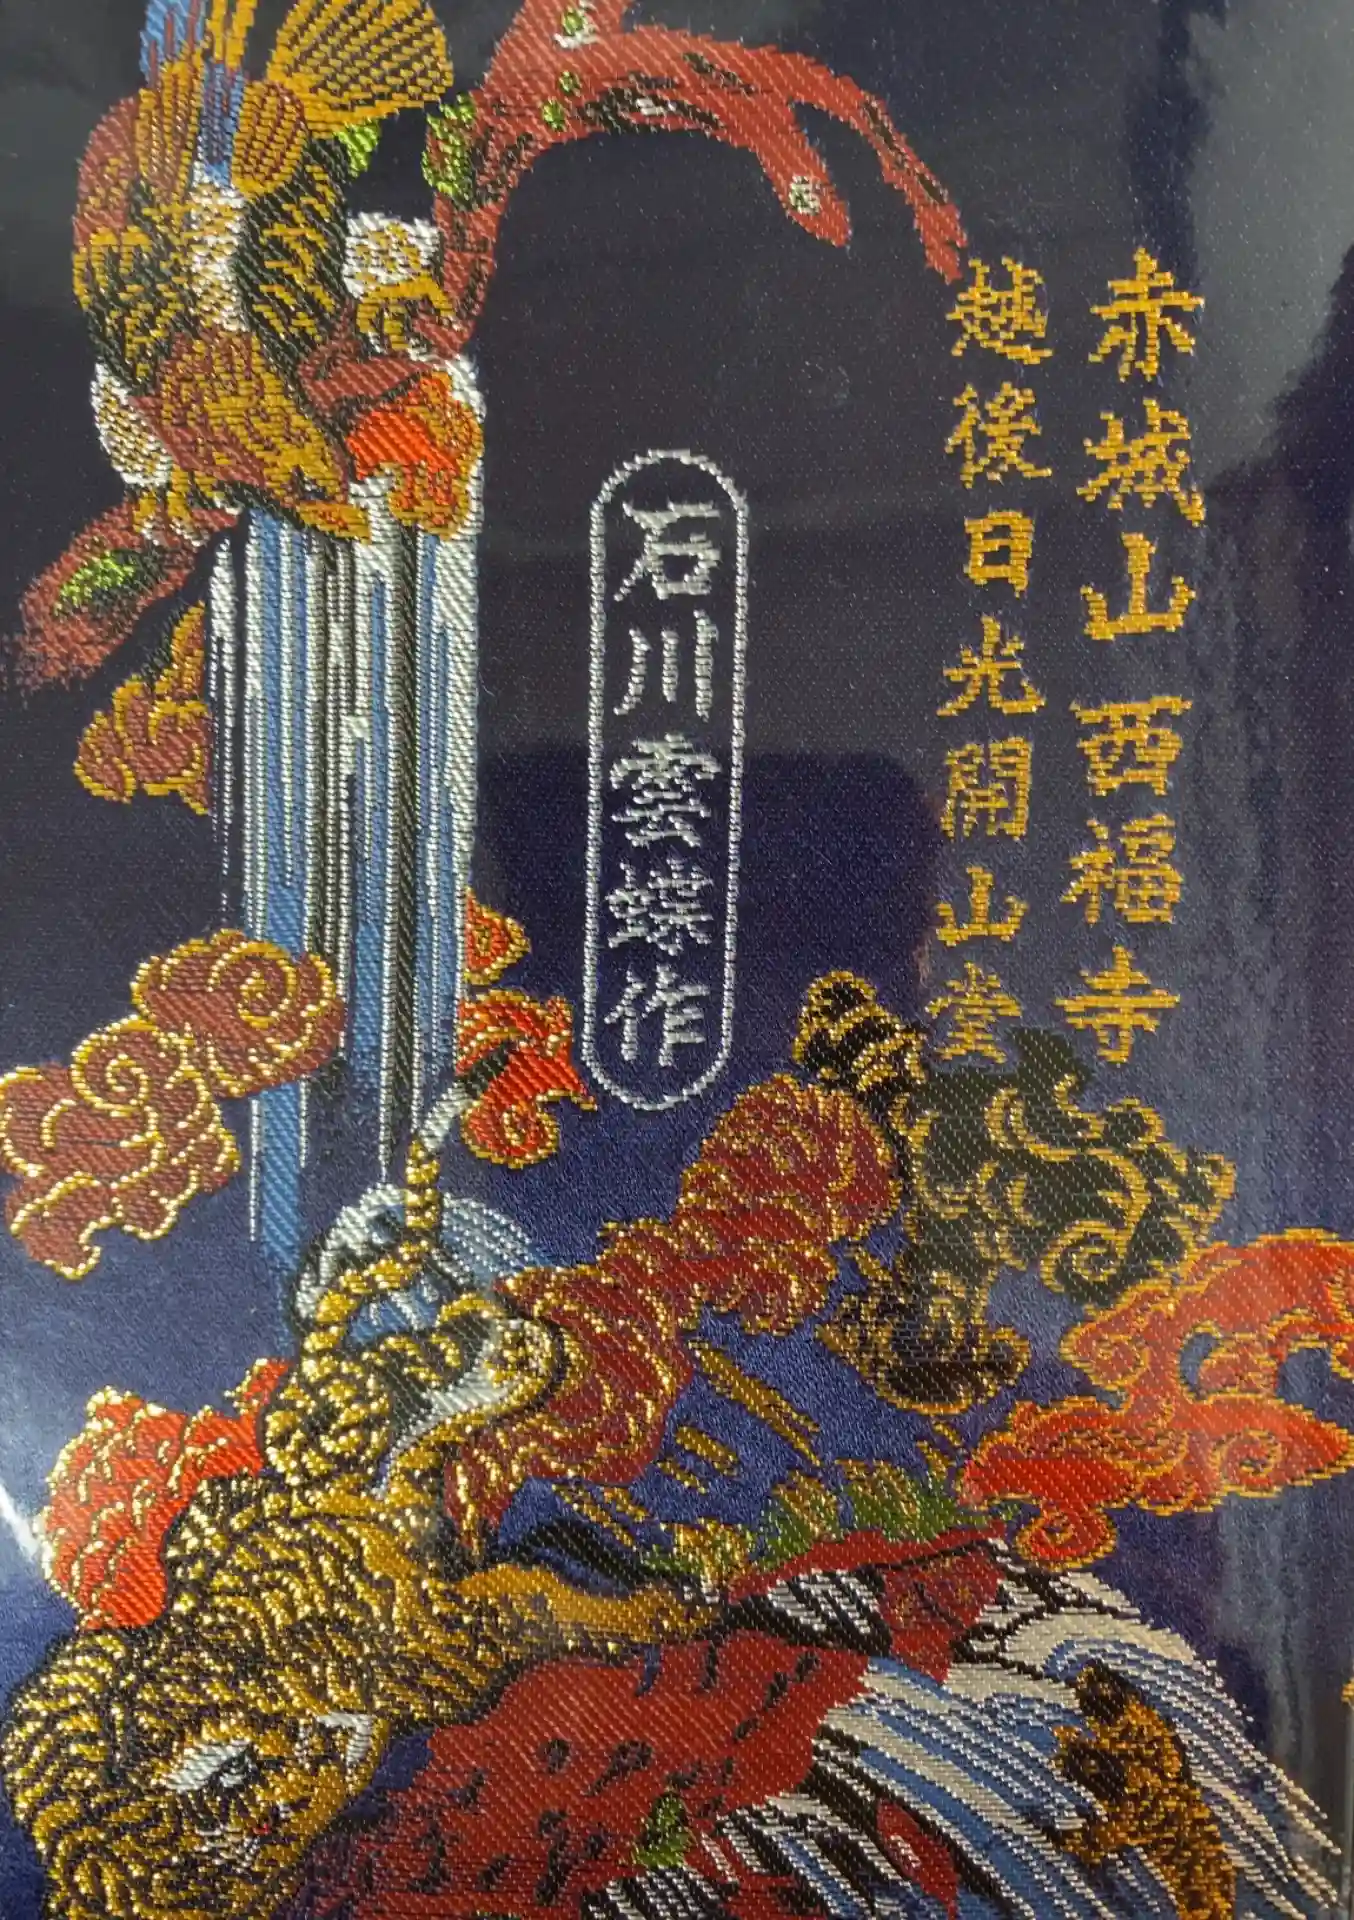 赤城山西福寺
越後日光開山堂
石川雲蝶作